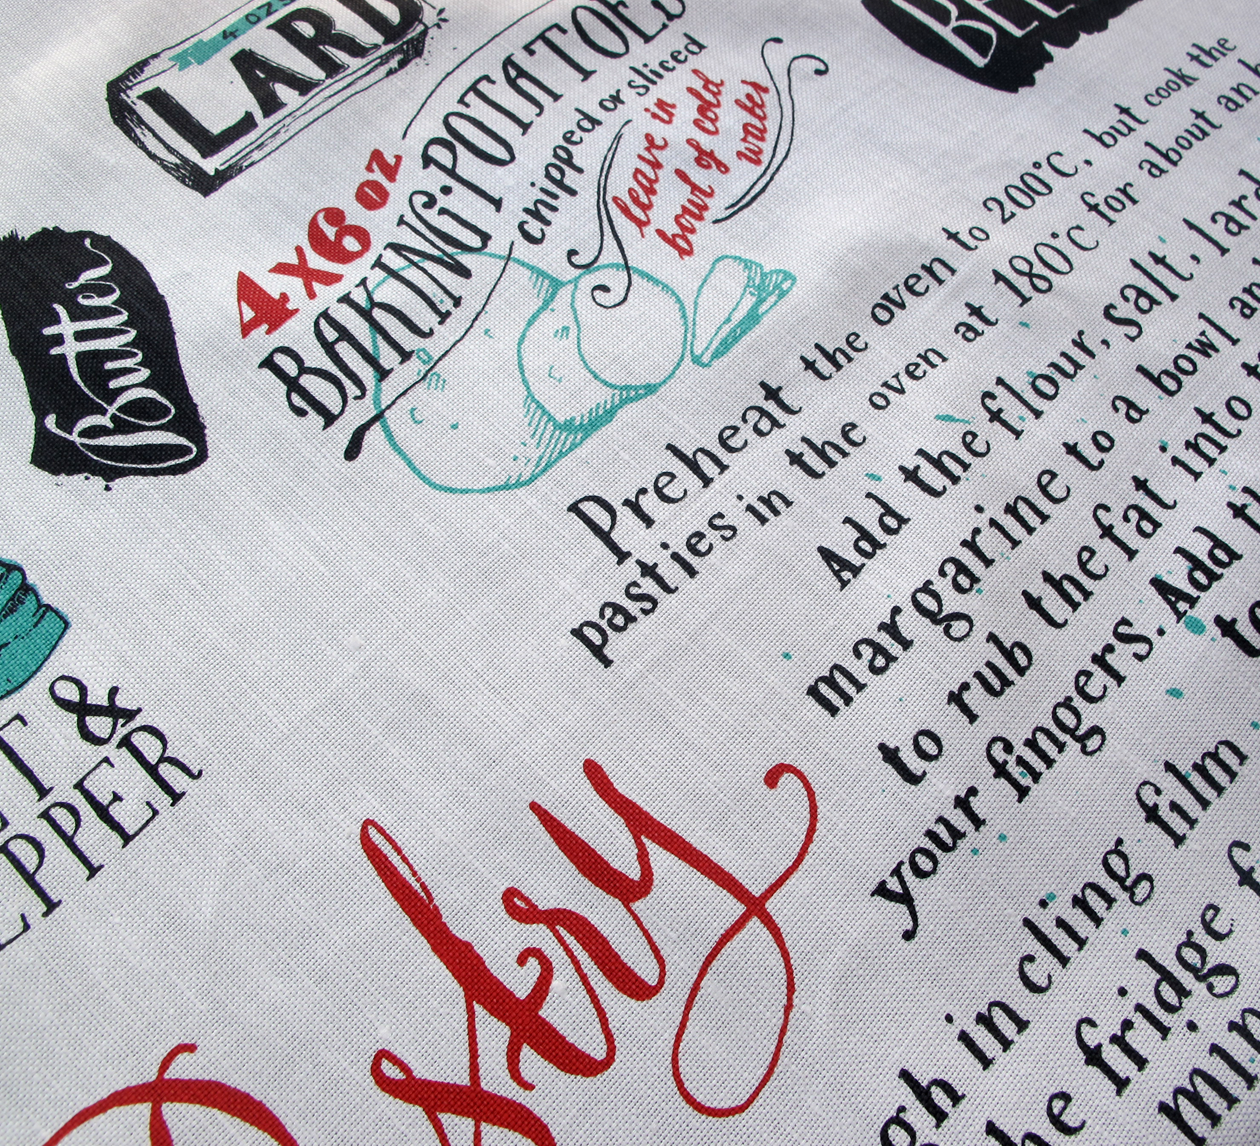 4 OZS
LARD
4x6 oz
BAKING·POTATOES
chipped or sliced
leave in
bowl of cold
water
Butter
&
Preheat the oven to 200°C, but cook the
pasties in the oven at 180°C for about an
Add the flour, salt, lard
margarine to a bowl
to rub the fat into
your fingers. Add
in cling film
fridge